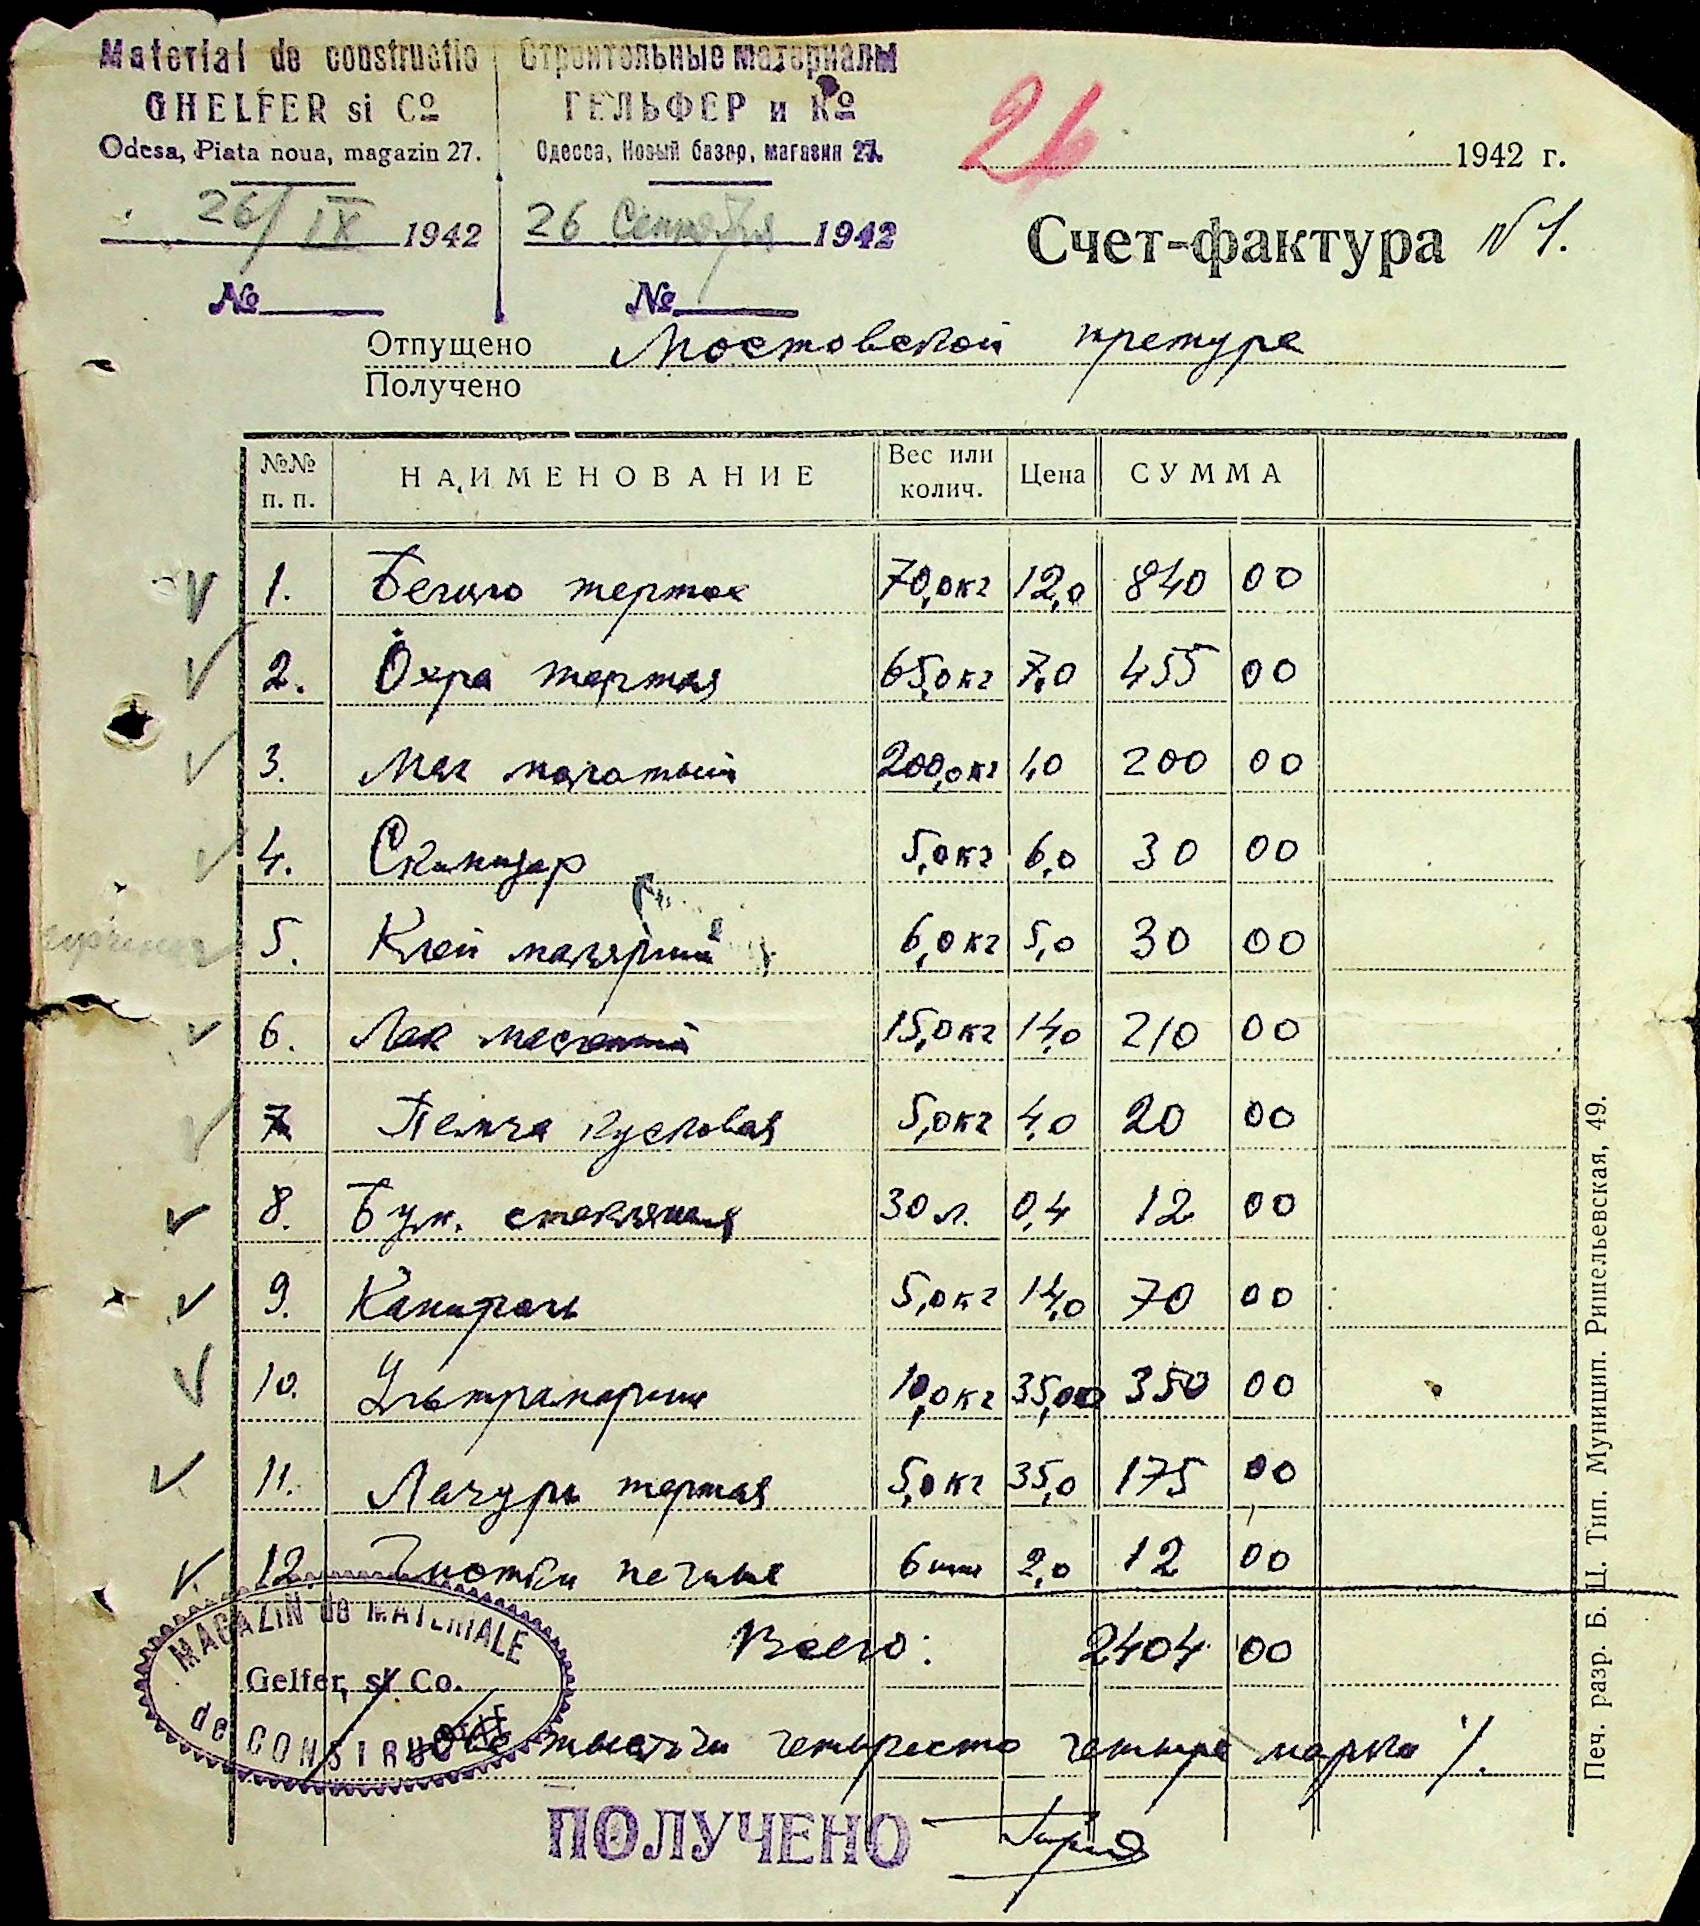 Material de constructie
GHELFER si Cº
Odesa, Piata noua, magazin 27.
26/IX 1942
№
Строительные материалы
ГЕЛЬФЕР и Кº
Одесса, Новый базар, магазин 27.
26 Сентября 1942
№
26
1942 г.
Счет-фактура № 1.
Отпущено Мостовской претуре
Получено
№№ п. п. НАИМЕНОВАНИЕ Вес или колич. Цена СУММА
1. Белило тертое 70,0кг 12,0 840 00
2. Охра тертая 65,0кг 7,0 455 00
3. Мел молотый 200,0кг 1,0 200 00
4. Скипидар 5,0кг 6,0 30 00
5. Клей малярный 6,0кг 5,0 30 00
6. Лак масляный 15,0кг 14,0 210 00
7 Пемза кусковая 5,0кг 4,0 20 00
8. Бум. стеклянная 30 л. 0,4 12 00
9. Канифоль 5,0кг 14,0 70 00
10. Ультрамарин 10,0кг 35,00 350 00
11. Лазурь тертая 5,0кг 35,0 175 00
12. печные 6 шт 2,0 12 00
Всего: 2404 00
MAGAZIN de MATERIALE
Gelfer, si Co.
de CONSTRUCTIE
Две тысячи четыреста четыре марки
ПОЛУЧЕНО
Печ. разр. Б. Ц. Тип. Муницип. Ришельевская, 49.